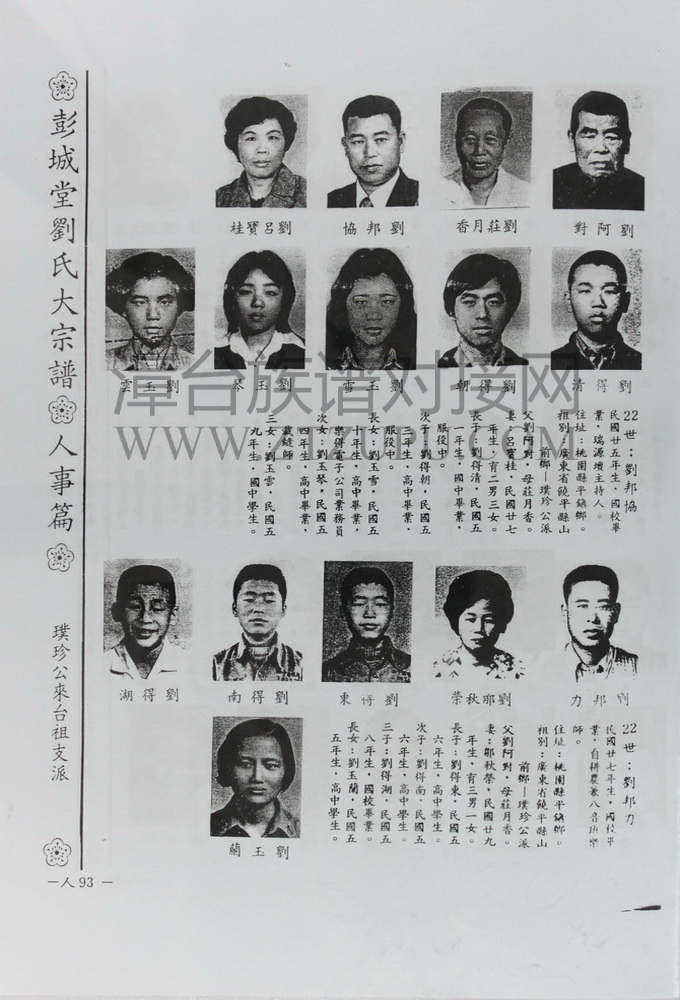 彭城堂劉氏大宗譜 人事篇
璞珍公來台祖支派
—人93—
劉阿對
劉莊月香
劉邦協
劉呂寶桂
劉得清
劉得朝
劉玉雪
劉玉琴
劉玉雲
22世：劉邦協
民國廿五年生，國校畢
業，瑞源壇主持人。
住址：桃園縣平鎮鄉。
祖別：廣東省饒平縣山
前鄉—璞珍公派
父劉阿對，母莊月香。
妻：呂寶桂，民國廿七
年生，育二男三女。
長子：劉得清，民國五
一年生，國中畢業，
服役中。
次子：劉得朝，民國五
年生，高中畢業，
服役中。
長女：劉玉雪，民國五
十年生，高中畢業，
樂得電子公司業務員
次女：劉玉琴，民國五
四年生，高中畢業，
裁縫師。
三女：劉玉雲，民國五
九年生，國中學生。
劉邦力
劉鄒秋榮
劉得東
劉得南
劉得湖
劉玉蘭
22世：劉邦力
民國廿七年生，國校畢
業，自耕農兼八音班樂
師。
住址：桃園縣平鎮鄉。
祖別：廣東省饒平縣山
前鄉—璞珍公派
父劉阿對，母莊月香。
妻：鄒秋榮，民國廿九
年生，育三男一女。
長子：劉得東，民國五
六年生，高中學生。
次子：劉得南，民國五
六年生，高中學生。
三子：劉得湖，民國五
八年生，國校畢業。
長女：劉玉蘭，民國五
五年生，高中學生。
漳台族谱对接网